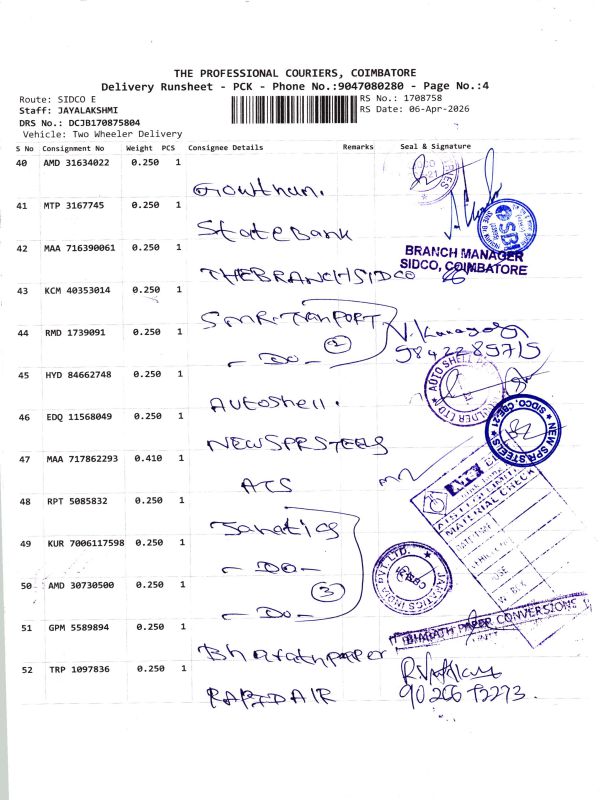 THE PROFESSIONAL COURIERS, COIMBATORE
Delivery Runsheet - PCK - Phone No.:9047080280 - Page No.:4
Route: SIDCO E
Staff: JAYALAKSHMI
DRS No.: DCJB170875804
Vehicle: Two Wheeler Delivery
RS No.: 1708758
RS Date: 06-Apr-2026
S No Consignment No Weight PCS Consignee Details Remarks Seal & Signature
40 AMD 31634022 0.250 1
Gowthan.
41 MTP 3167745 0.250 1
State Bank
SBI
42 MAA 716390061 0.250 1
BRANCH MANAGER
SIDCO, COIMBATORE
THE BRANCH SIDCO
43 KCM 40353014 0.250 1
SMR-TRANPORT
44 RMD 1739091 0.250 1
- Do - 2
9842289715
45 HYD 84662748 0.250 1
Autoshell.
46 EDQ 11568049 0.250 1
NEW SPR STEELS
NEW SPR STEELS * SIDCO, CBE-21 *
47 MAA 717862293 0.410 1
ATS
MATERIAL CHECK
48 RPT 5085832 0.250 1
Janatics
49 KUR 7006117598 0.250 1
- DO -
JANATICS INDIA PVT. LTD.
50 AMD 30730500 0.250 1
3
- Do -
51 GPM 5589894 0.250 1
BHARATH PAPER CONVERSIONS
Bharathpaper
52 TRP 1097836 0.250 1
RAPID AIR